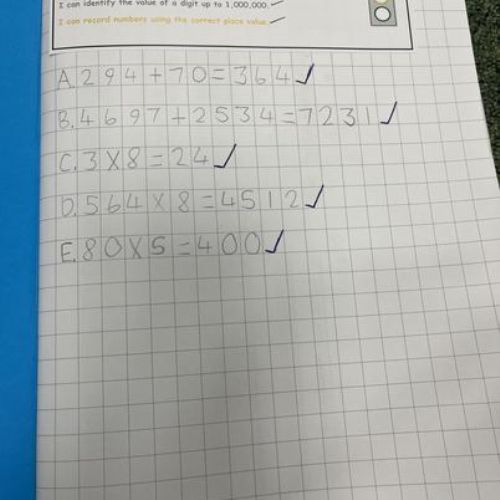 I can identify the value of a digit up to 1,000,000.
I can record numbers using the correct place value.
A. 294 + 70 = 364 ✓
B. 4697 + 2534 = 7231 ✓
C. 3 X 8 = 24 ✓
D. 564 X 8 = 4512 ✓
E. 80 X 5 = 400 ✓